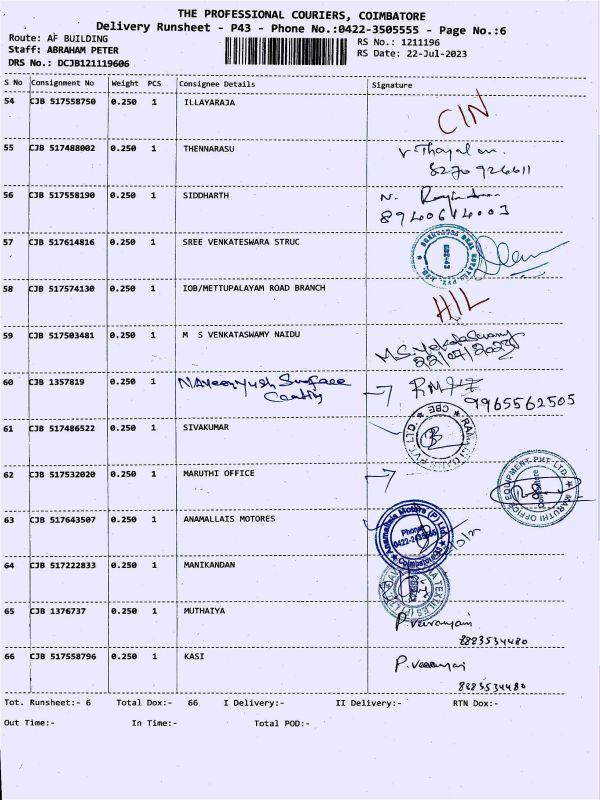 THE PROFESSIONAL COURIERS, COIMBATORE
Delivery Runsheet - P43 - Phone No.:0422-3505555 - Page No.:6
Route: AF BUILDING
RS No.: 1211196
Staff: ABRAHAM PETER
RS Date: 22-Jul-2023
DRS No.: DCJB121119606
S No Consignment No Weight PCS Consignee Details Signature
54 CJB 517558750 0.250 1 ILLAYARAJA
55 CJB 517488002 0.250 1 THENNARASU
8270926611
56 CJB 517558190 0.250 1 SIDDHARTH N.
8940614003
57 CJB 517614816 0.250 1 SREE VENKATESWARA STRUC
58 CJB 517574130 0.250 1 IOB/METTUPALAYAM ROAD BRANCH
59 CJB 517503481 0.250 1 M S VENKATASWAMY NAIDU
22/07/2023
60 CJB 1357819 0.250 1 Surface
9965562505
61 CJB 517486522 0.250 1 SIVAKUMAR
62 CJB 517532020 0.250 1 MARUTHI OFFICE
MARUTHI OFFICE EQUIPMENT PVT. LTD.
63 CJB 517643507 0.250 1 ANAMALLAIS MOTORES
Anamallais Motors (P) Ltd.
Phone
Coimbatore
64 CJB 517222833 0.250 1 MANIKANDAN
65 CJB 1376737 0.250 1 MUTHAIYA
8883534480
66 CJB 517558796 0.250 1 KASI
8883534480
Tot. Runsheet:- 6 Total Dox:- 66 I Delivery:- II Delivery:- RTN Dox:-
Out Time:- In Time:- Total POD:-